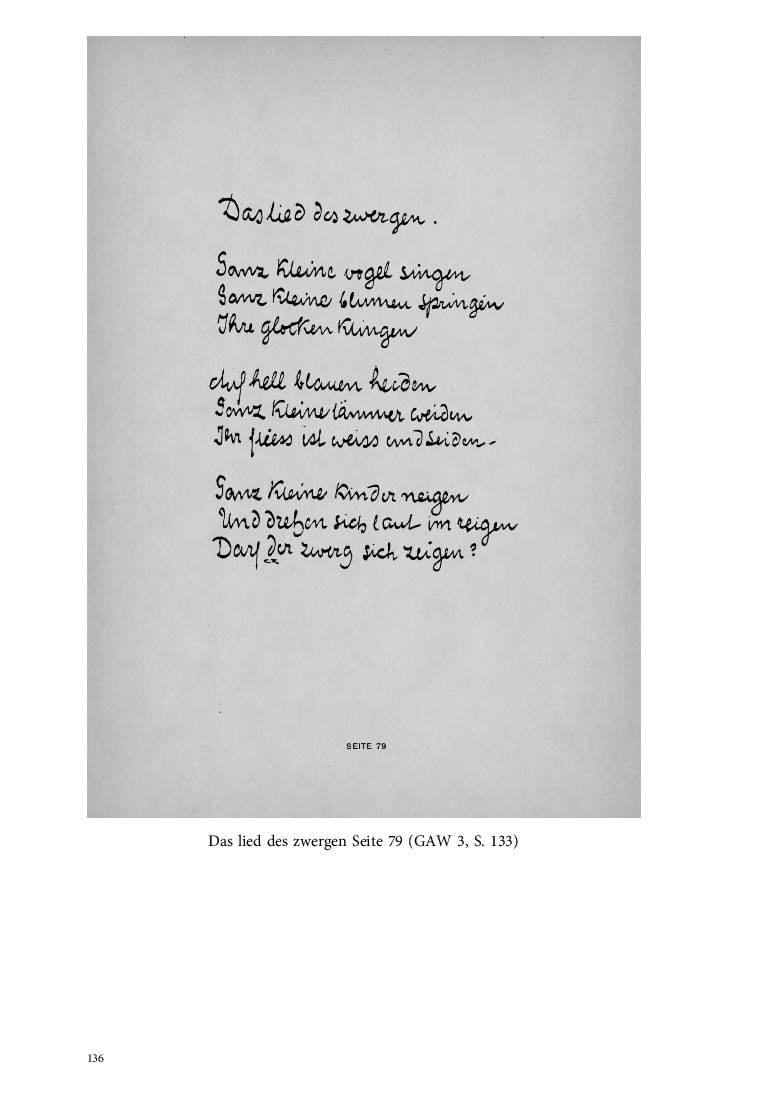 Das lied des zwergen.
Ganz kleine vogel singen
Ganz kleine blumen springen
Ihre glocken klingen
Auf hell blauen heiden
Ganz kleine lämmer weiden
Ihr fliess ist weiss und seiden-
Ganz kleine kinder neigen
Und drehen sich laut im reigen
Darf der zwerg sich zeigen?
SEITE 79
Das lied des zwergen Seite 79 (GAW 3, S. 133)
136